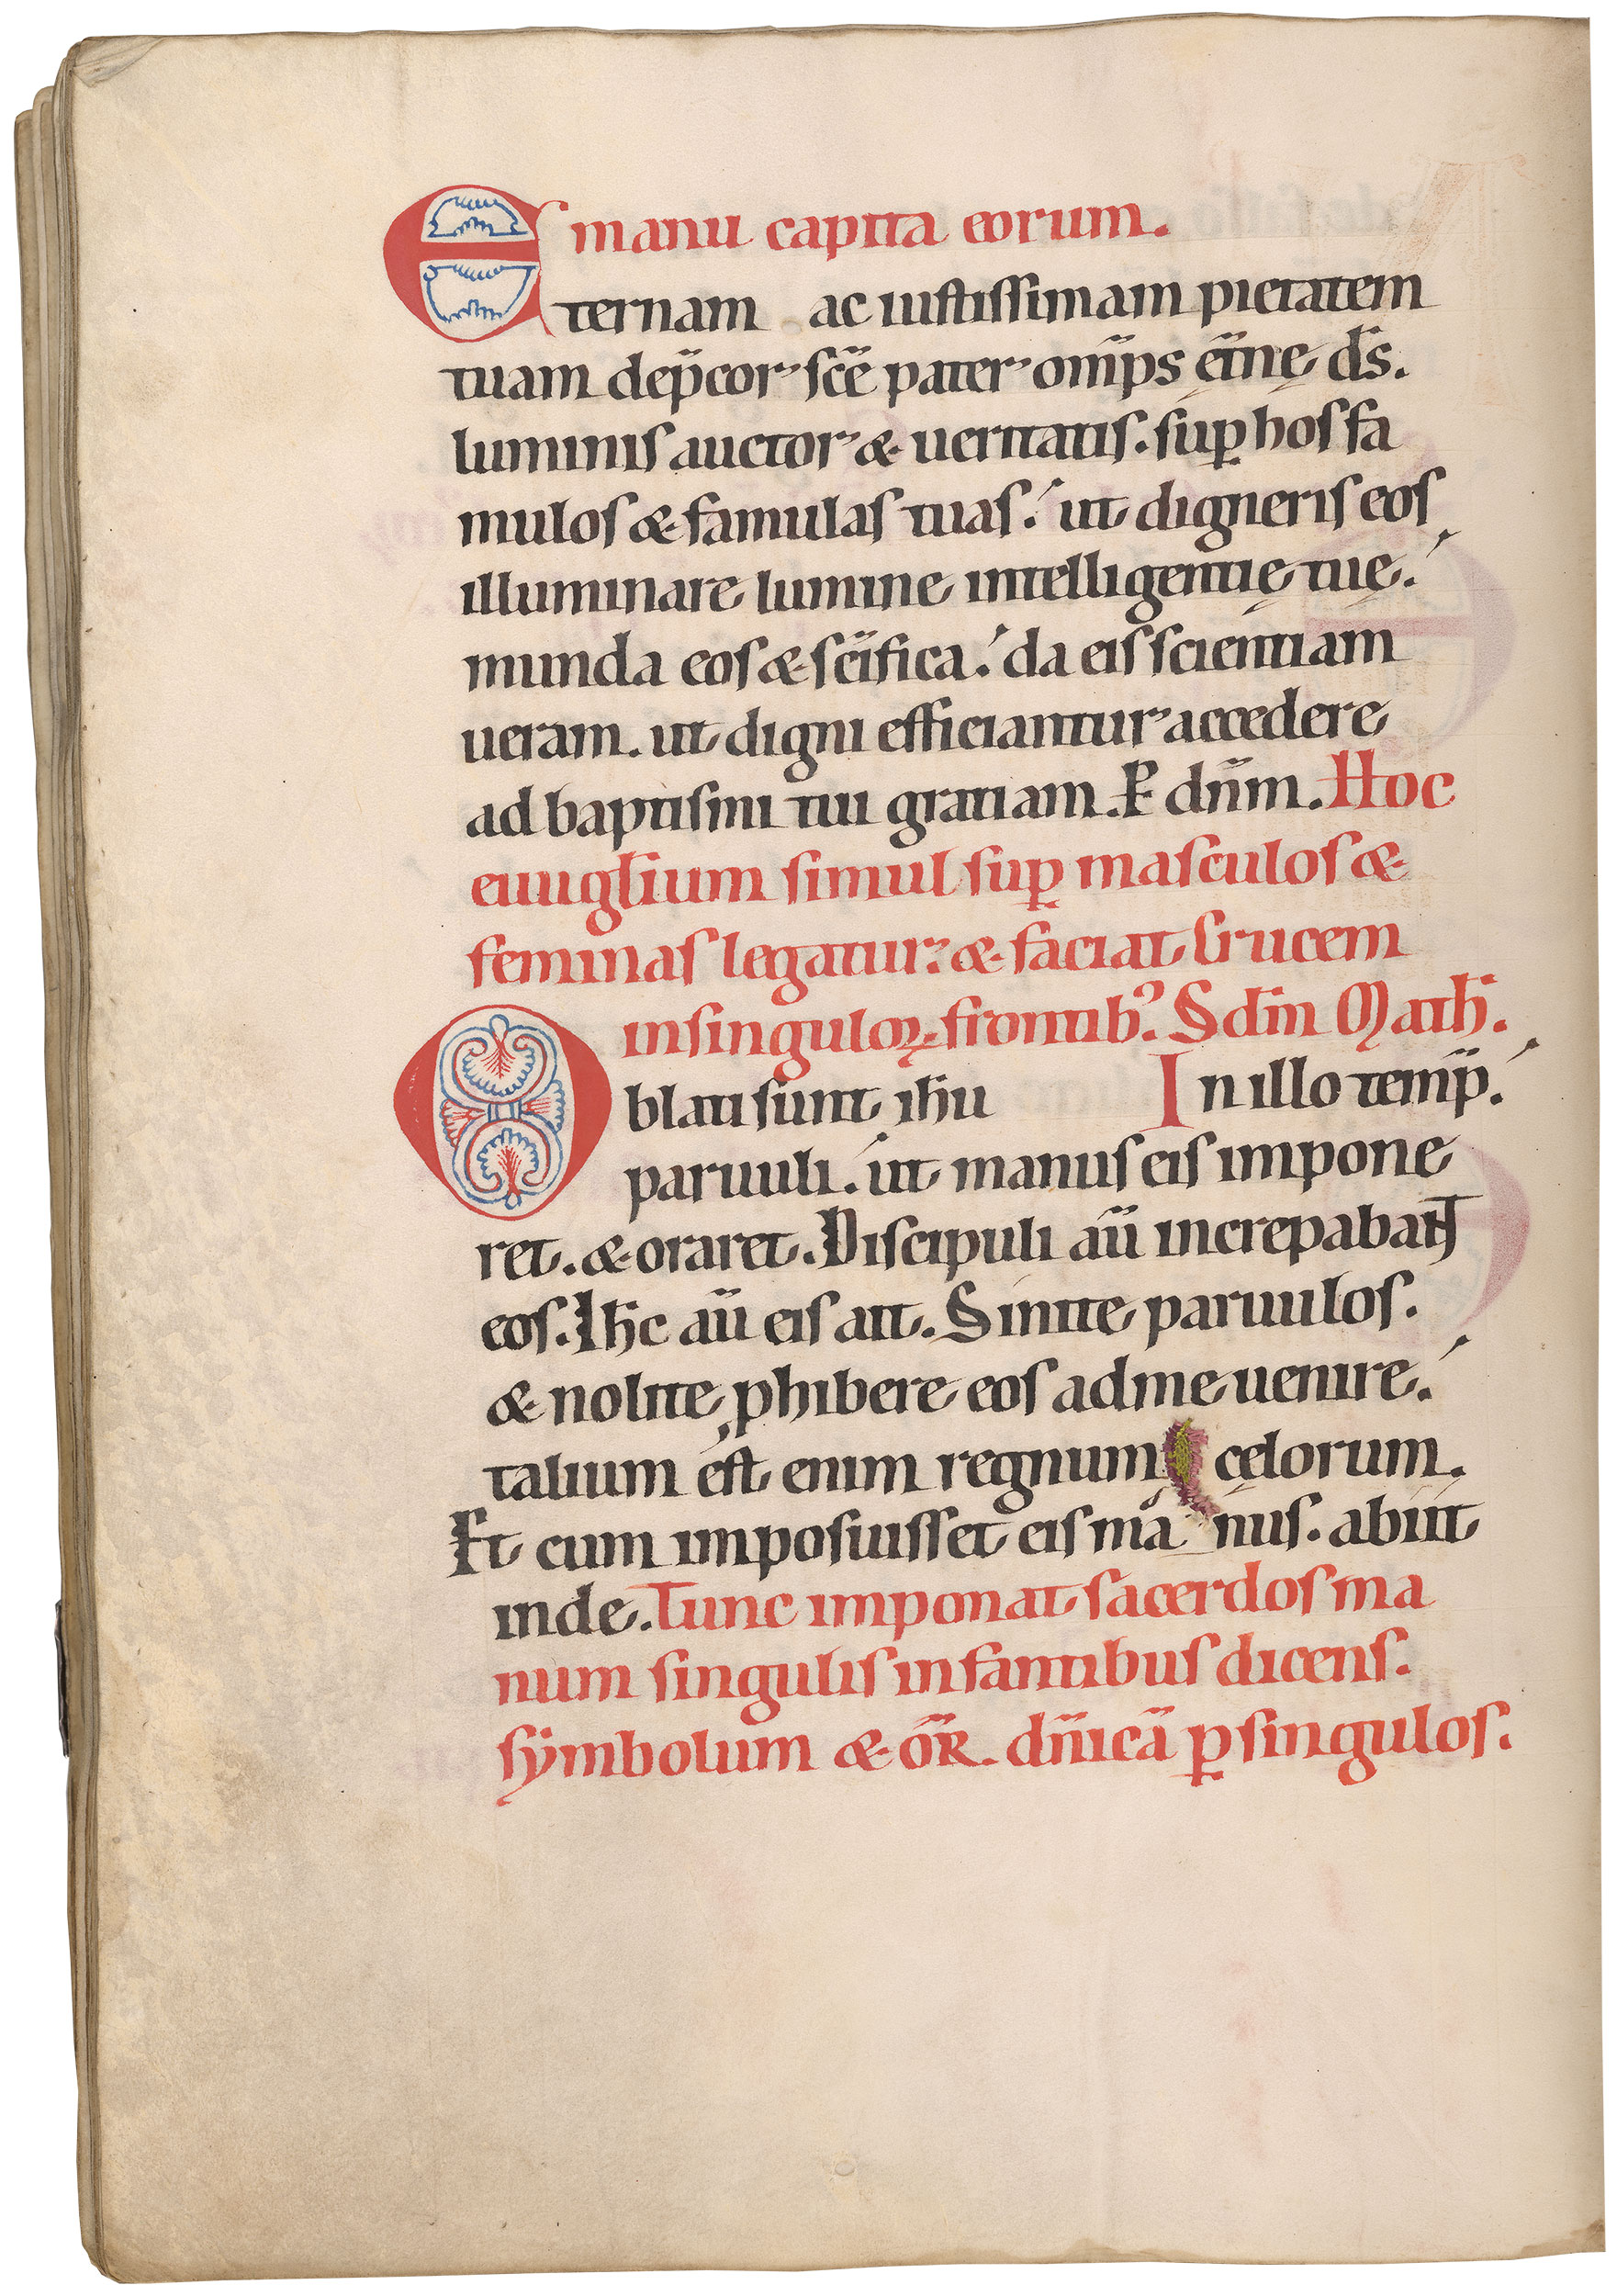 manu capita eorum.
Eternam ac iustissimam pietatem
tuam dep̄cor sc̄e pater om̄ps et̄ne ds̄.
luminis auctor & ueritatis. sup̲ hos fa
mulos & famulas tuas. ut digneris eos
illuminare lumine intelligentię tuę.
munda eos & sc̄ifica. da eis scientiam
ueram. ut digni efficiantur accedere
ad baptismi tui gratiam. P dn̄m. Hoc
euuglīum simul sup̲ masculos &
feminas legatur. & faciat crucem
in singuloꝝ frontib⁹. Sc̄dm Math̄.
Oblati sunt ih̄u In illo temp̄.
paruuli. ut manus eis impone
ret. & oraret. Discipuli aū increpabant
eos. Ih̄c aū eis ait. Sinite paruulos.
& nolite ꝓhibere eos ad me uenire.
talium est enim regnum cęlorum.
Et cum imposuisset eis ma nus. abiit
inde. Tunc imponat sacerdos ma
num singulis infantibus dicens.
sẏmbolum & or̄. dn̄icā ꝑ singulos.